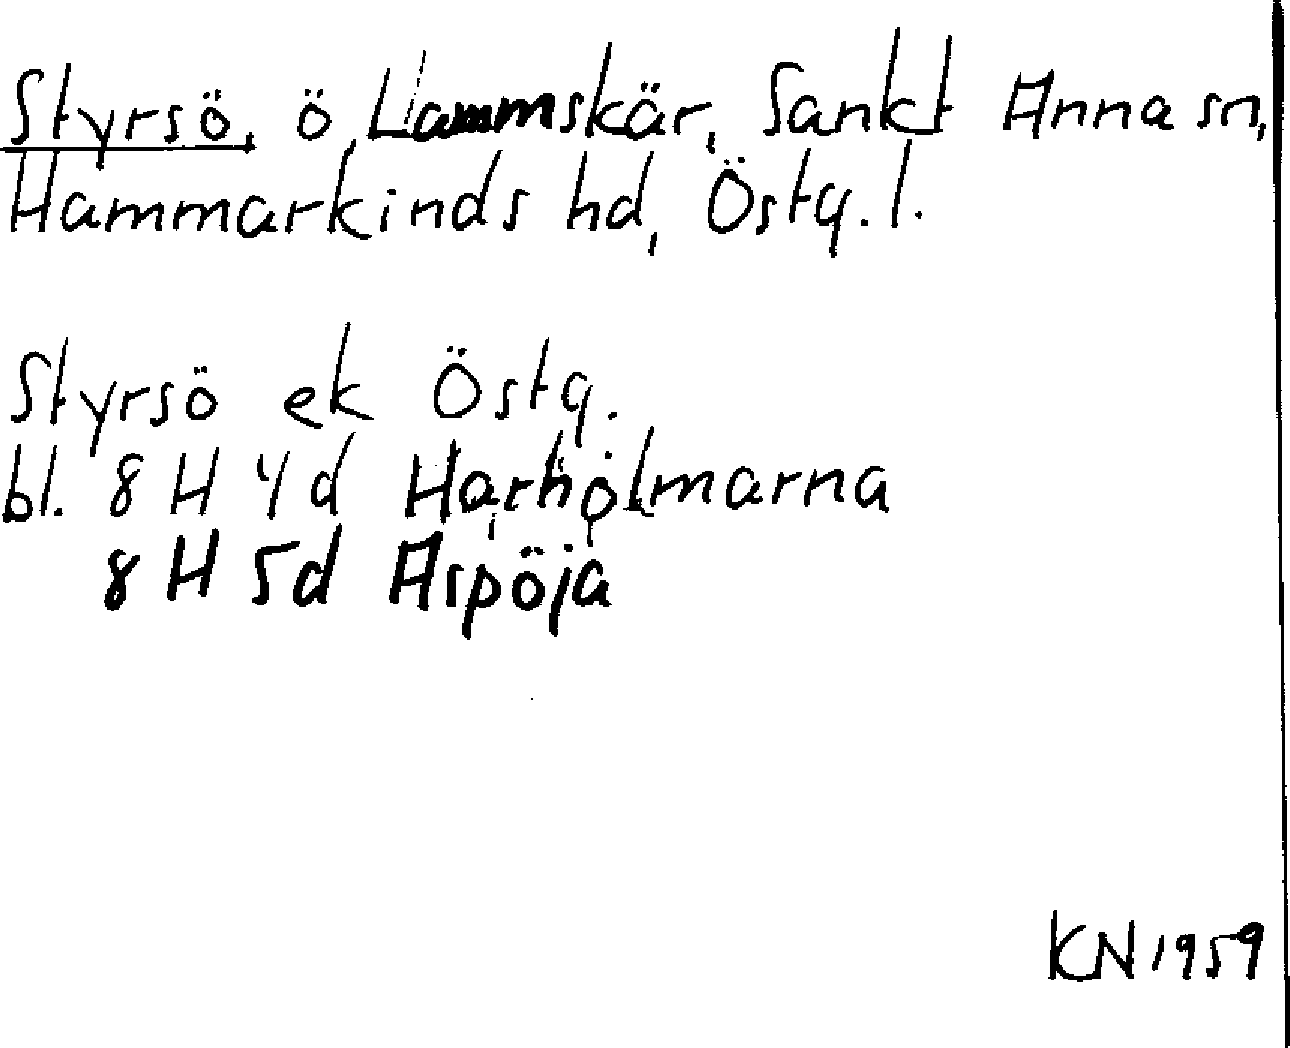 Styrsö, ö, Lammskär, Sankt Anna sn,
Hammarkinds hd, Östg. l.
Styrsö ek Östg.
bl. 8 H 4d Harholmarna
8 H 5d Aspöja
KN 1959